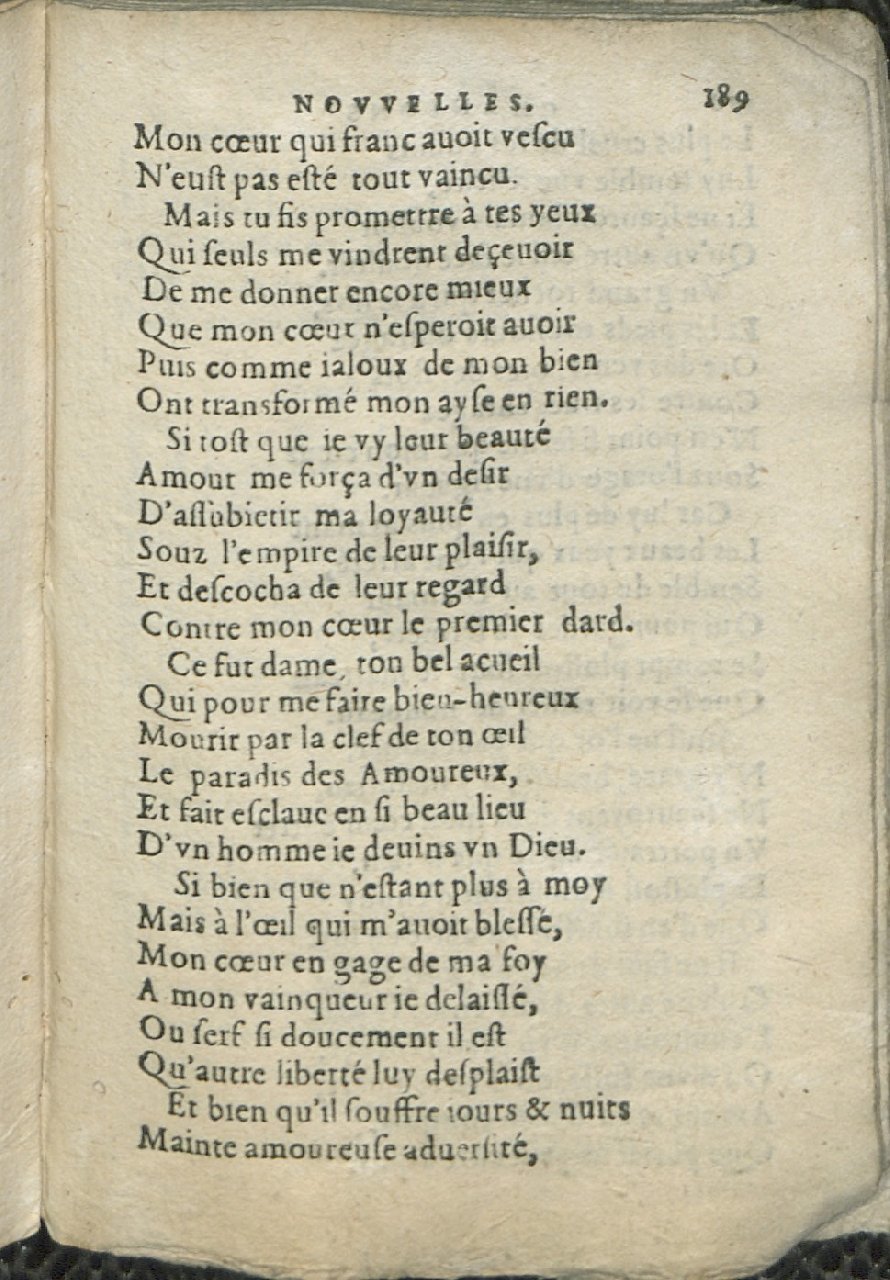 NOVVELLES. 189
Mon cœur qui franc auoit veſcu
N'euſt pas eſté tout vaincu.
Mais tu fis promettre à tes yeux
Qui ſeuls me vindrent deçeuoir
De me donner encore mieux
Que mon cœur n'eſperoit auoir
Puis comme ialoux de mon bien
Ont transformé mon ayſe en rien.
Si toſt que ie vy leur beauté
Amour me força d'vn deſir
D'aſſubietir ma loyauté
Souz l'empire de leur plaiſir,
Et deſcocha de leur regard
Contre mon cœur le premier dard.
Ce fut dame, ton bel acueil
Qui pour me faire bien-heureux
Mourir par la clef de ton œil
Le paradis des Amoureux,
Et fait eſclaue en ſi beau lieu
D'vn homme ie deuins vn Dieu.
Si bien que n'eſtant plus à moy
Mais à l'œil qui m'auoit bleſſé,
Mon cœur en gage de ma foy
A mon vainqueur ie delaiſſé,
Ou ſerf ſi doucement il eſt
Qu'autre liberté luy deſplaiſt
Et bien qu'il ſouffre iours & nuits
Mainte amoureuſe aduerſité,